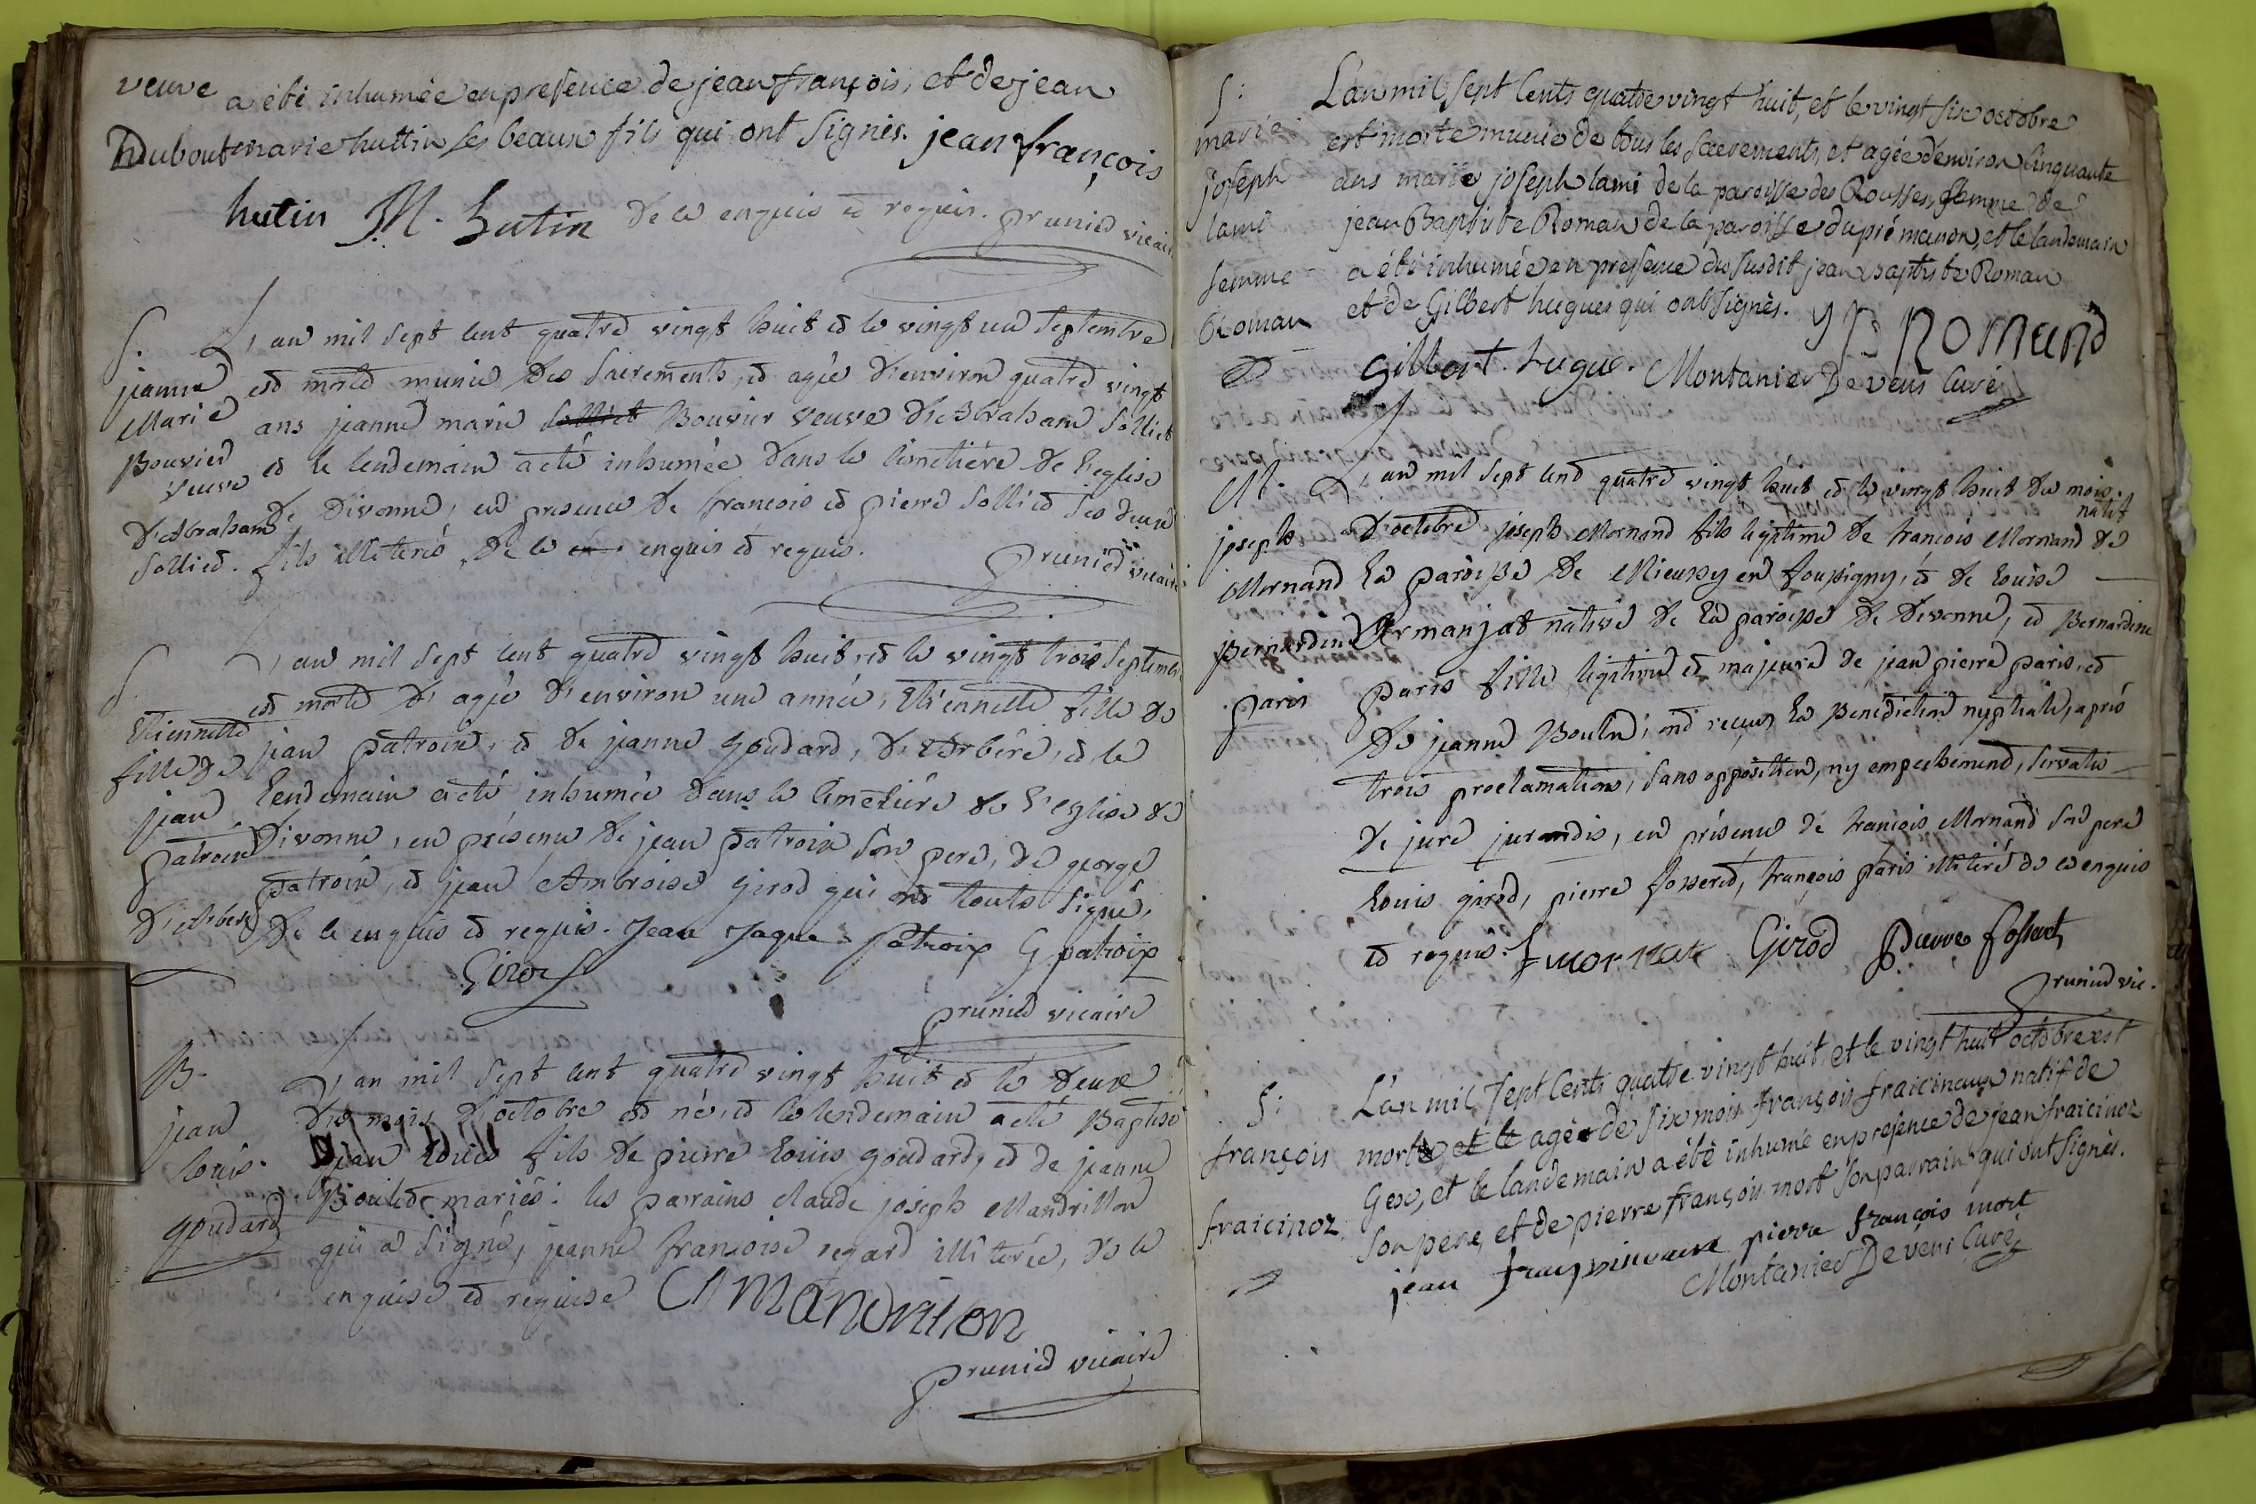 veuve
Dubout
a été inhumée en presence de jean françois, et de jean
marie huttin ses beaux fils qui ont signés. jean françois
hutin M. hutin de ce enquis et requis. prunied vicaire
S.
jeanne
Marie
Bouvier
veuve
d'Abraham
Solliet.
L'an mil sept cent quatre vingt huit et le vingt un septembre
est morte munie des sacrements, et agée d'environ quatre vingt
ans jeanne marie Solliet Bouvier veuve d'Abraham Solliet
et le lendemain a eté inhumée dans le cimetière de l'eglise
de Divonne, en presence de françois et pierre Solliet ses deux
fils illiterés, de ce enquis et requis.
prunied vicaire
S.
Etiennette
fille de
jean
patroix
d'Arbere
L'an mil sept cent quatre vingt huit, et le vingt trois septembre
est morte et agée d'environ une année, Etiennette fille de
jean patroix, et de jeanne goudard, d'Arbère, et le
lendemain a eté inhumée dans le cimetière de l'eglise de
Divonne, en présence de jean patroix son pere, de george
patroix, et jean Ambroise girod qui ont touts signé,
de ce enquis et requis. Jean Jaque patroix G patroix
Girod
prunied vicaire
B.
jean
louis
goudard
L'an mil sept cent quatre vingt huit et le deux
du mois d'octobre est né, et le lendemain a eté Baptisé
jean louis fils de pierre louis goudard, et de jeanne
Boulet mariés: les parrains claude joseph Mandrillon
qui a signé, jeanne françoise regard illiterée, de ce
enquise et requise CJ Mandrillon
prunied vicaire
S:
marie
joseph
lami
femme
Roman
L'an mil sept cents quatre vingt huit, et le vingt six octobre
est morte munie de tous les sacrements, et agée d'environ cinquante
ans marie joseph lami de la paroisse des Rousses, femme de
jean Baptiste Roman de la paroisse du pré manon, et le landemain
a été inhumée en presence du susdit jean baptiste Roman
et de Gilbert hugues qui ont signés. JB Romand
Gilbert hugue. Montanier De veni Curé
M.
joseph
Mornand
Bernardine
paris
L'an mil sept cent quatre vingt huit et le vingt huit du mois
d'octobre joseph Mornand fils legitime de françois Mornand natif de
la paroisse de Mieussy en foussigny, et de louise
Armanjat native de la paroisse de Divonne, et Bernardine
paris fille legitime et majeure de jean pierre paris, et
de jeanne Boulet, ont reçus la benediction nuptiale, après
trois proclamations, sans opposition, ny empechement, servatis
de jure jurandis, en présence de françois Mornand son pere
louis girod, pierre fosseret, françois paris illiteré de ce enquis
et requis. f mornat Girod pierre fosseret
prunied vic.
S:
françois
fraicinoz
L'an mil sept cents quatre vingt huit, et le vingt huit octobre est
mort et le agé de six mois françois fraicinoux natif de
Gex, et le landemain a été inhumé en presence de jean fraicinoz
son pere, et de pierre françois mort son parrain qui ont signés.
jean pierre françois mort
Montanier De veni Curé